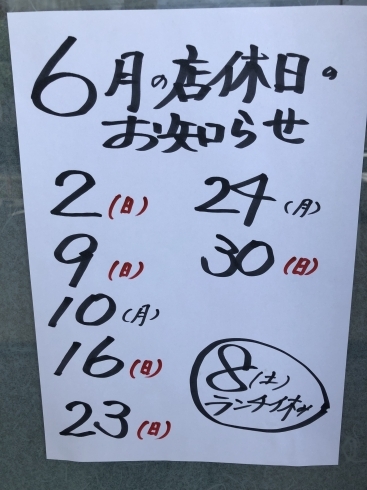 6月の店休日の
お知らせ
2(日)
9(日)
10(月)
16(日)
23(日)
24(月)
30(日)
8(土)
ランチ休み